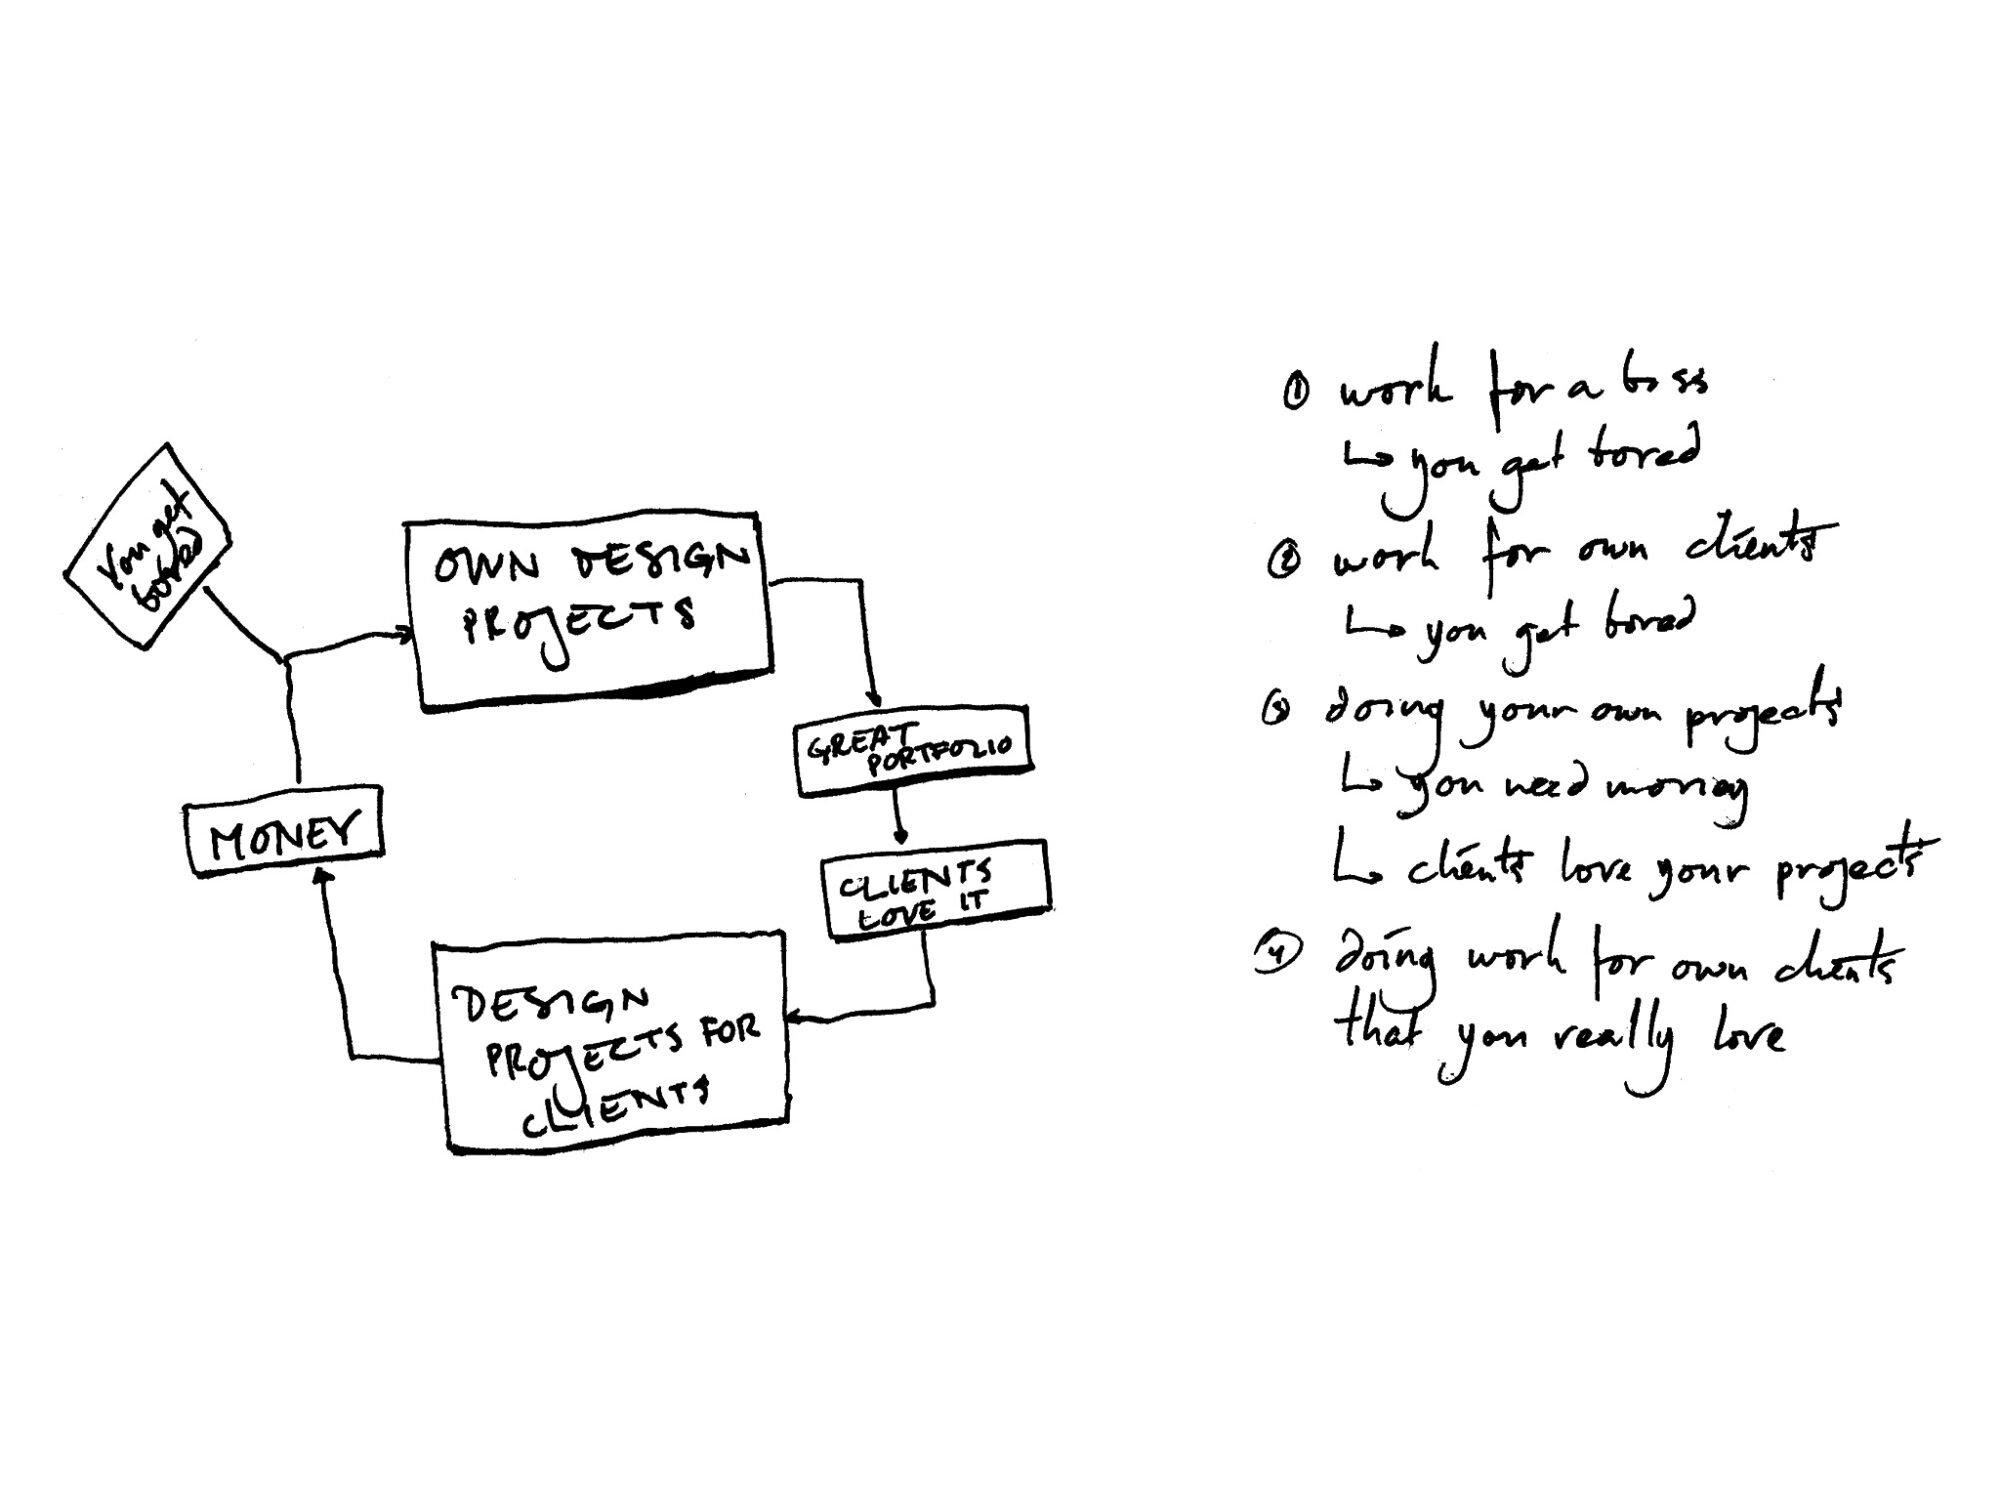 You get
bored
OWN DESIGN
PROJECTS
GREAT
PORTFOLIO
CLIENTS
LOVE IT
DESIGN
PROJECTS FOR
CLIENTS
MONEY
① work for a boss
↳ you get bored
② work for own clients
↳ you get bored
③ doing your own projects
↳ you need money
↳ clients love your projects
④ doing work for own clients
that you really love